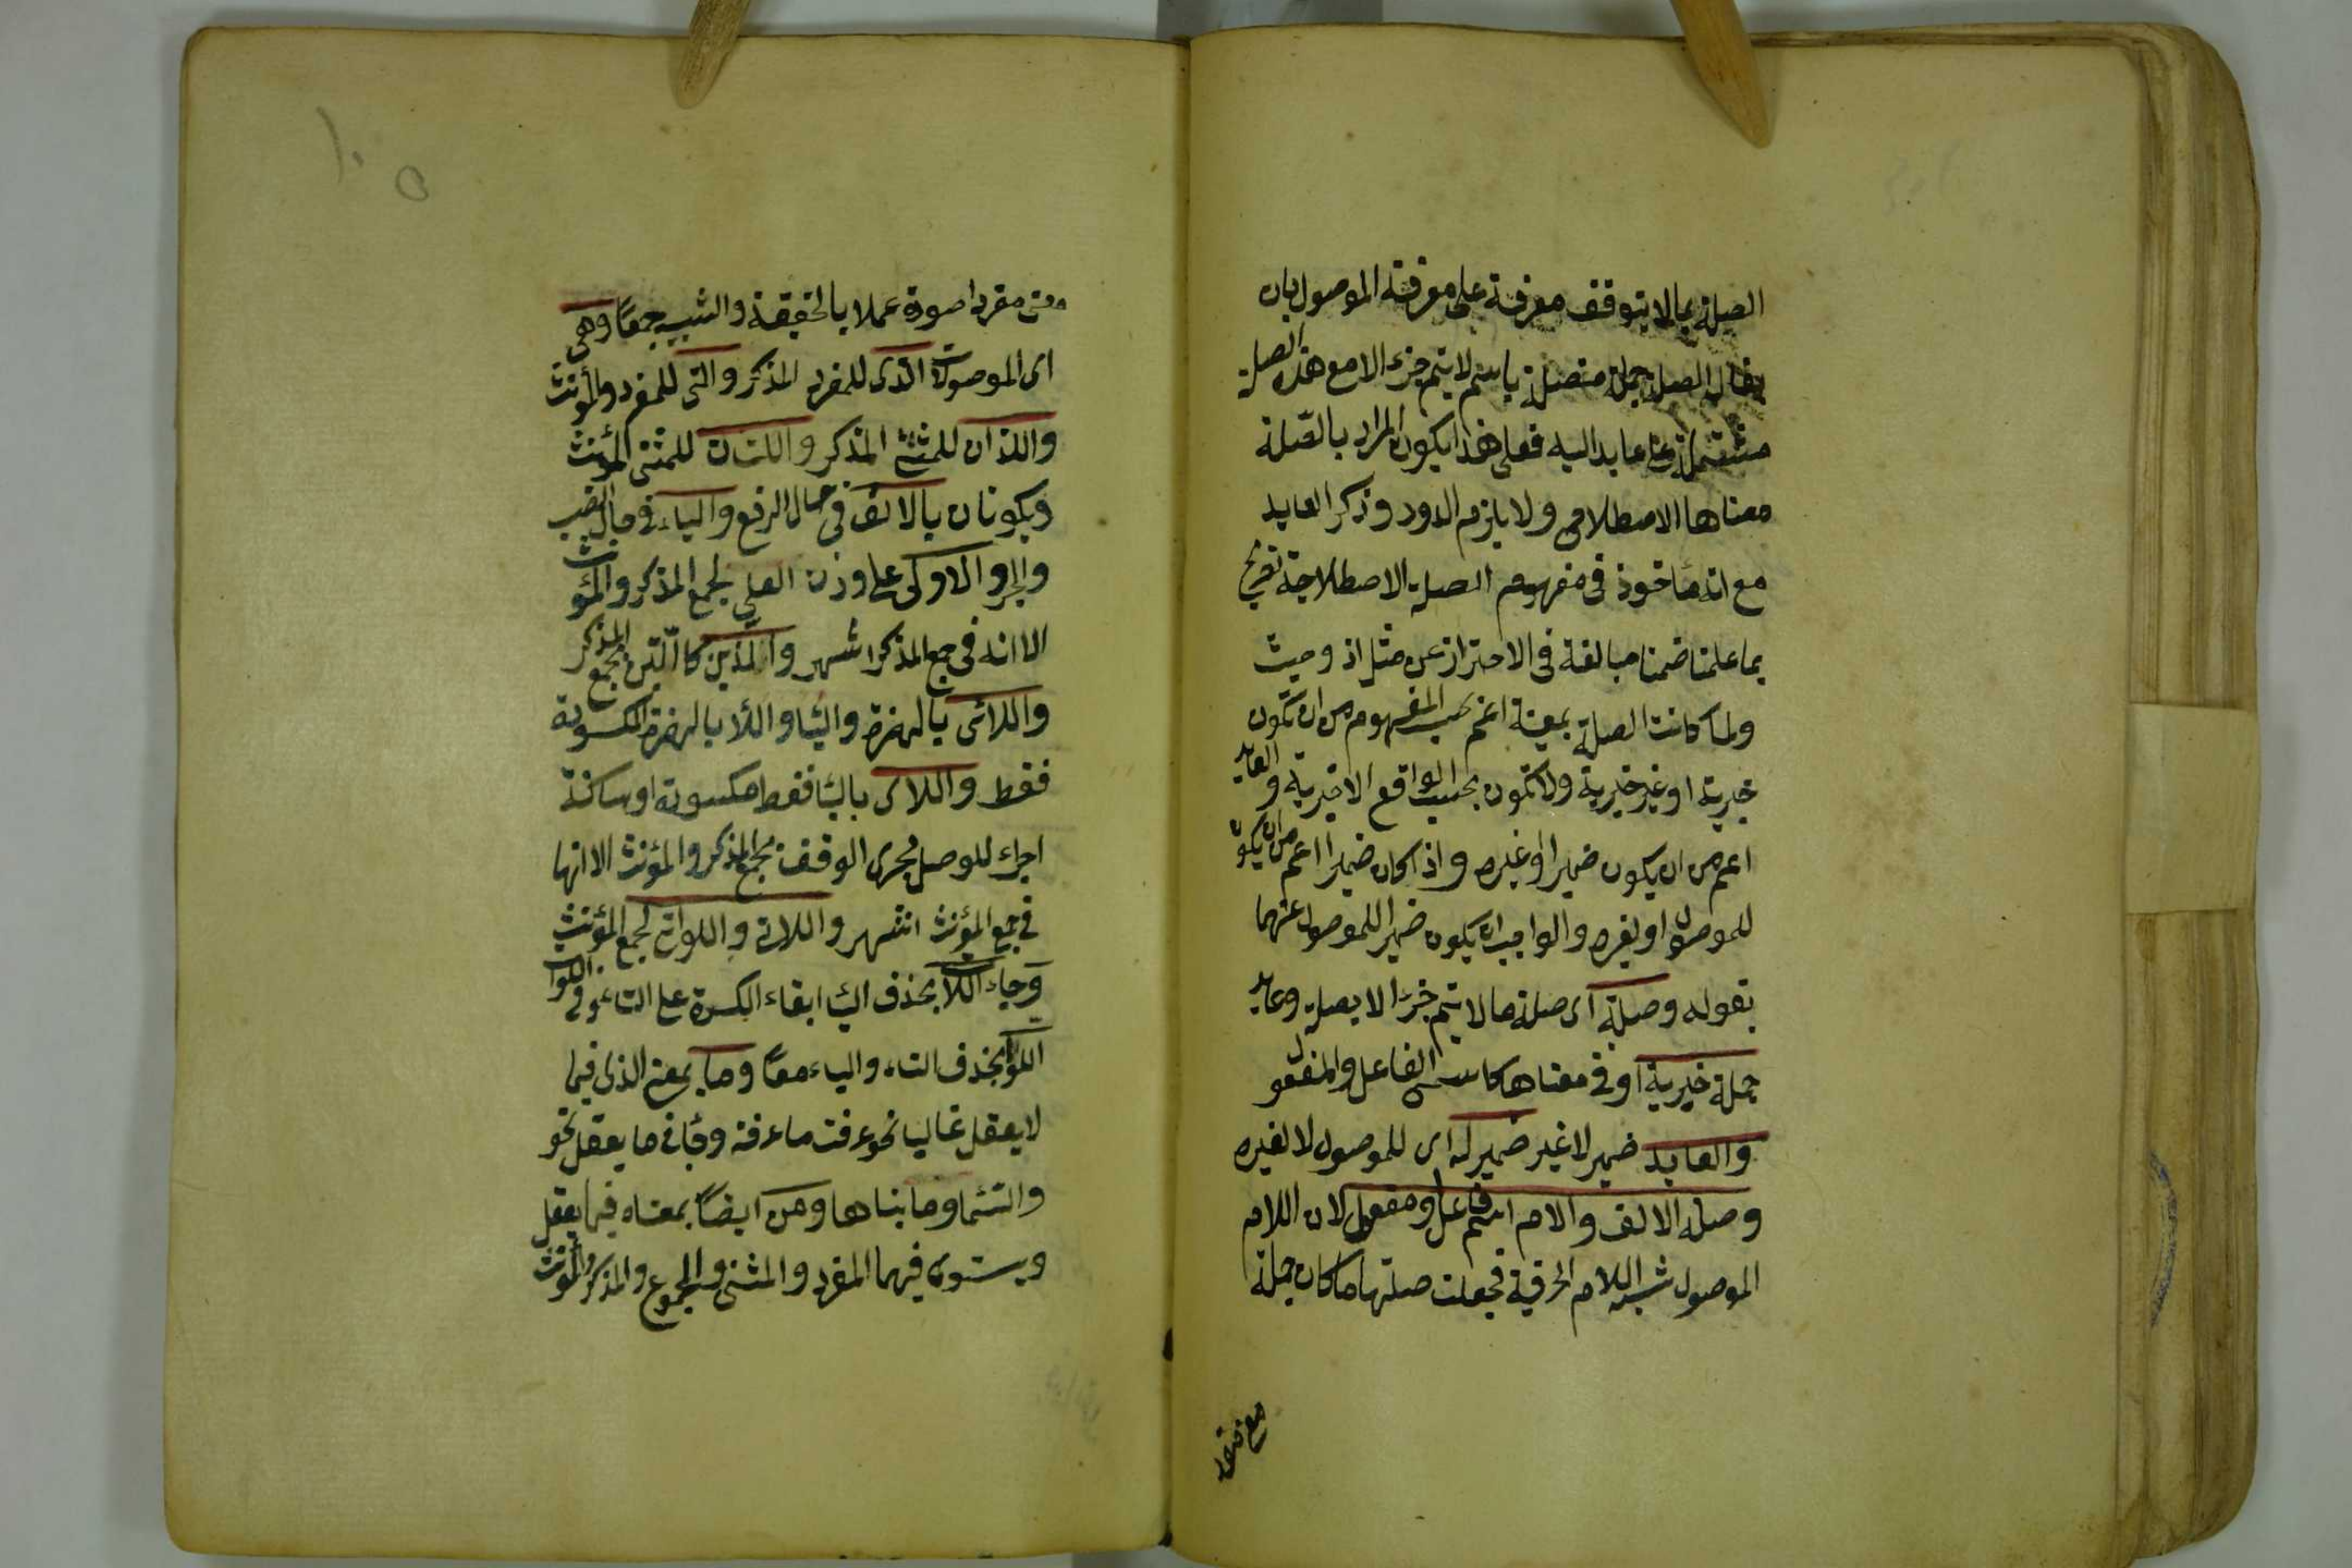 الصلة بما لا يتوقف معرفة على معرفة الموصول بان
يقال الصلة جملة متصلة باسم لا يتم جزء الا مع هذه الصلة
مشتملة على عايد اليه فعلى هذا يكون المراد بالصّلة
معناها الاصطلاحى ولا يلزم الدور وذكر العايد
مع انه مأخوذ فى مفهوم الصلة الاصطلاحية تصريح
بما علمنا ضمنا مبالغة فى الاحتراز عن مثل اذ وحيث
ولما كانت الصلة بمعنة اعم بحسب المفهوم من ان تكون
خبرية او غير خبرية ولا تكون بحسب الواقع الا خبرية والعايد
اعم من ان يكون ضميرا او غيره واذا كان ضميرا اعم من ان يكون
للموصول او لغيره والواجب ان يكون ضمير اللموصول عنهما
بقوله وصلة اى صلة ما لا يتم جزءا الا بصلة وعايد
جملة خبرية او فى معناها كاسمى الفاعل والمفعول
والعايد ضمير لا غير ضمير له اى للموصول لا لغيره
وصلة الالف والام اسم فاعل او مفعول لان اللام
الموصول شبه اللام الحرفية فجعلت صلتها ما كان جملة
معنى مفردا صورة عملا بالحقيقة والشبه جمعًا وهى
اى الموصولات الذى للمفرد المذكر والتى للمفرد والمؤنث
واللذان للمثنى المذكر واللتان للمثنى المؤنث
ويكونان بالالف فى حال الرفع والياء فى حال النصب
والجر والاولى على وزن العلى لجمع المذكر والمؤنث
الا انه فى جمع المذكر اشهر والذين كاللتين لجمع المذكر
واللائى بالهمزة والياء واللاء بالهمزة المكسورة
فقط واللاى بالياء فقط مكسورة او ساكنة
اجراء للوصل مجرى الوقف لجمع المذكر والمؤنث الا انها
فى جمع المؤنث اشهر واللاتى واللواتى لجمع المؤنث
وجاء اللات بحذف الياء ابقاء الكسرة على التاء وفى اللوات
اللوا بحذف التاء والياء معًا وما بمعنى الذى فيما
لا يعقل غاليا نحو عرفت ما عرفته وجاء فى ما يعقل نحو
والسماء وما بناها ومن ايضًا بمعناه فيما يعقل
ويستوى فيهما المفرد والمثنى والمجموع والمذكر والمؤنث